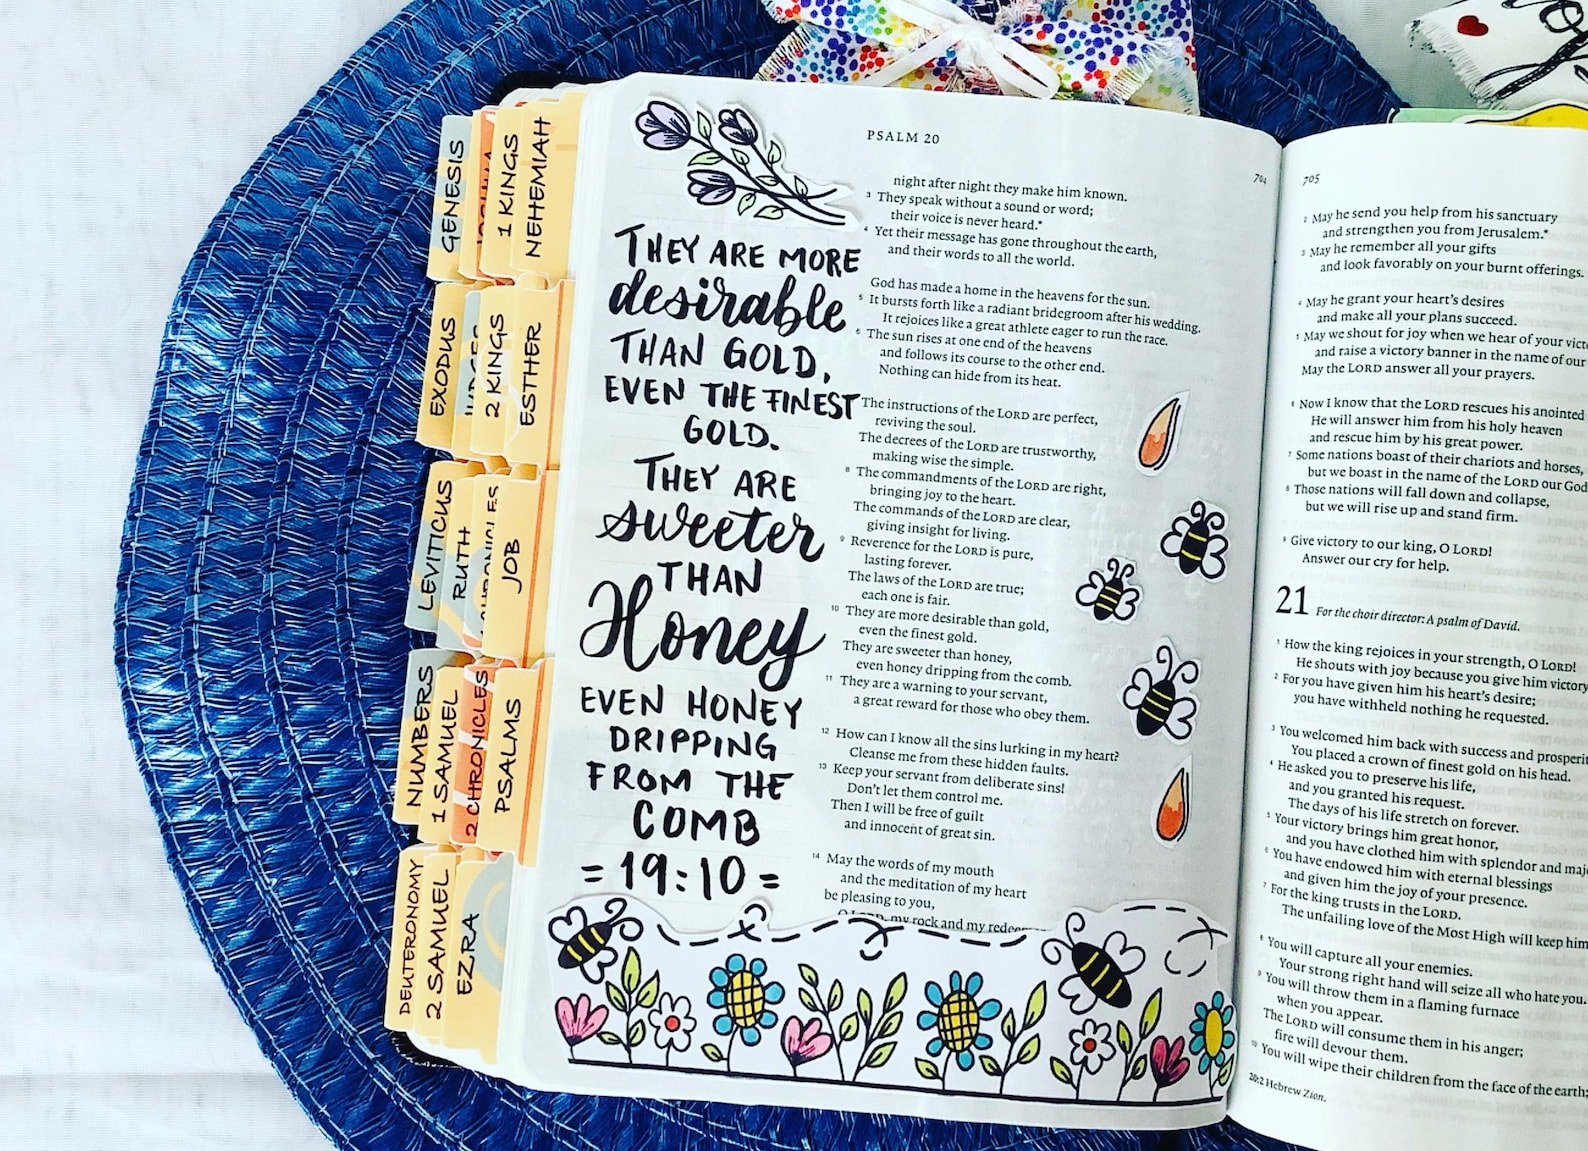 GENESIS
1 KINGS
NEHEMIAH
EXODUS
2 KINGS
ESTHER
LEVITICUS
RUTH
JOB
NUMBERS
1 SAMUEL
2 CHRONICLES
PSALMS
DEUTERONOMY
2 SAMUEL
EZRA
THEY ARE MORE
desirable
THAN GOLD,
EVEN THE FINEST
GOLD.
THEY ARE
sweeter
THAN
Honey
EVEN HONEY
DRIPPING
FROM THE
COMB
= 19:10 =
PSALM 20
704
night after night they make him known.
3 They speak without a sound or word;
their voice is never heard.*
4 Yet their message has gone throughout the earth,
and their words to all the world.
God has made a home in the heavens for the sun.
5 It bursts forth like a radiant bridegroom after his wedding.
It rejoices like a great athlete eager to run the race.
6 The sun rises at one end of the heavens
and follows its course to the other end.
Nothing can hide from its heat.
The instructions of the LORD are perfect,
reviving the soul.
The decrees of the LORD are trustworthy,
making wise the simple.
8 The commandments of the LORD are right,
bringing joy to the heart.
The commands of the LORD are clear,
giving insight for living.
9 Reverence for the LORD is pure,
lasting forever.
The laws of the LORD are true;
each one is fair.
10 They are more desirable than gold,
even the finest gold.
They are sweeter than honey,
even honey dripping from the comb.
11 They are a warning to your servant,
a great reward for those who obey them.
12 How can I know all the sins lurking in my heart?
Cleanse me from these hidden faults.
13 Keep your servant from deliberate sins!
Don't let them control me.
Then I will be free of guilt
and innocent of great sin.
14 May the words of my mouth
and the meditation of my heart
be pleasing to you,
O LORD, my rock and my
705
2 May he send you help from his sanctuary
and strengthen you from Jerusalem.*
3 May he remember all your gifts
and look favorably on your burnt offerings.
4 May he grant your heart's desires
and make all your plans succeed.
5 May we shout for joy when we hear of your
and raise a victory banner in the name of our
May the LORD answer all your prayers.
6 Now I know that the LORD rescues his anointed
He will answer him from his holy heaven
and rescue him by his great power.
7 Some nations boast of their chariots and horses,
but we boast in the name of the LORD our God
8 Those nations will fall down and collapse,
but we will rise up and stand firm.
9 Give victory to our king, O LORD!
Answer our cry for help.
21 For the choir director: A psalm of David.
1 How the king rejoices in your strength, O LORD!
He shouts with joy because you give him victory
2 For you have given him his heart's desire;
you have withheld nothing he requested.
3 You welcomed him back with success and
You placed a crown of finest gold on his head.
4 He asked you to preserve his life,
and you granted his request.
The days of his life stretch on forever.
5 Your victory brings him great honor,
and you have clothed him with splendor and
6 You have endowed him with eternal blessings
and given him the joy of your presence.
7 For the king trusts in the LORD.
The unfailing love of the Most High will keep him
8 You will capture all your enemies.
Your strong right hand will seize all who hate you.
9 You will throw them in a flaming furnace
when you appear.
The LORD will consume them in his anger;
fire will devour them.
10 You will wipe their children from the face of the earth;
20:2 Hebrew Zion.